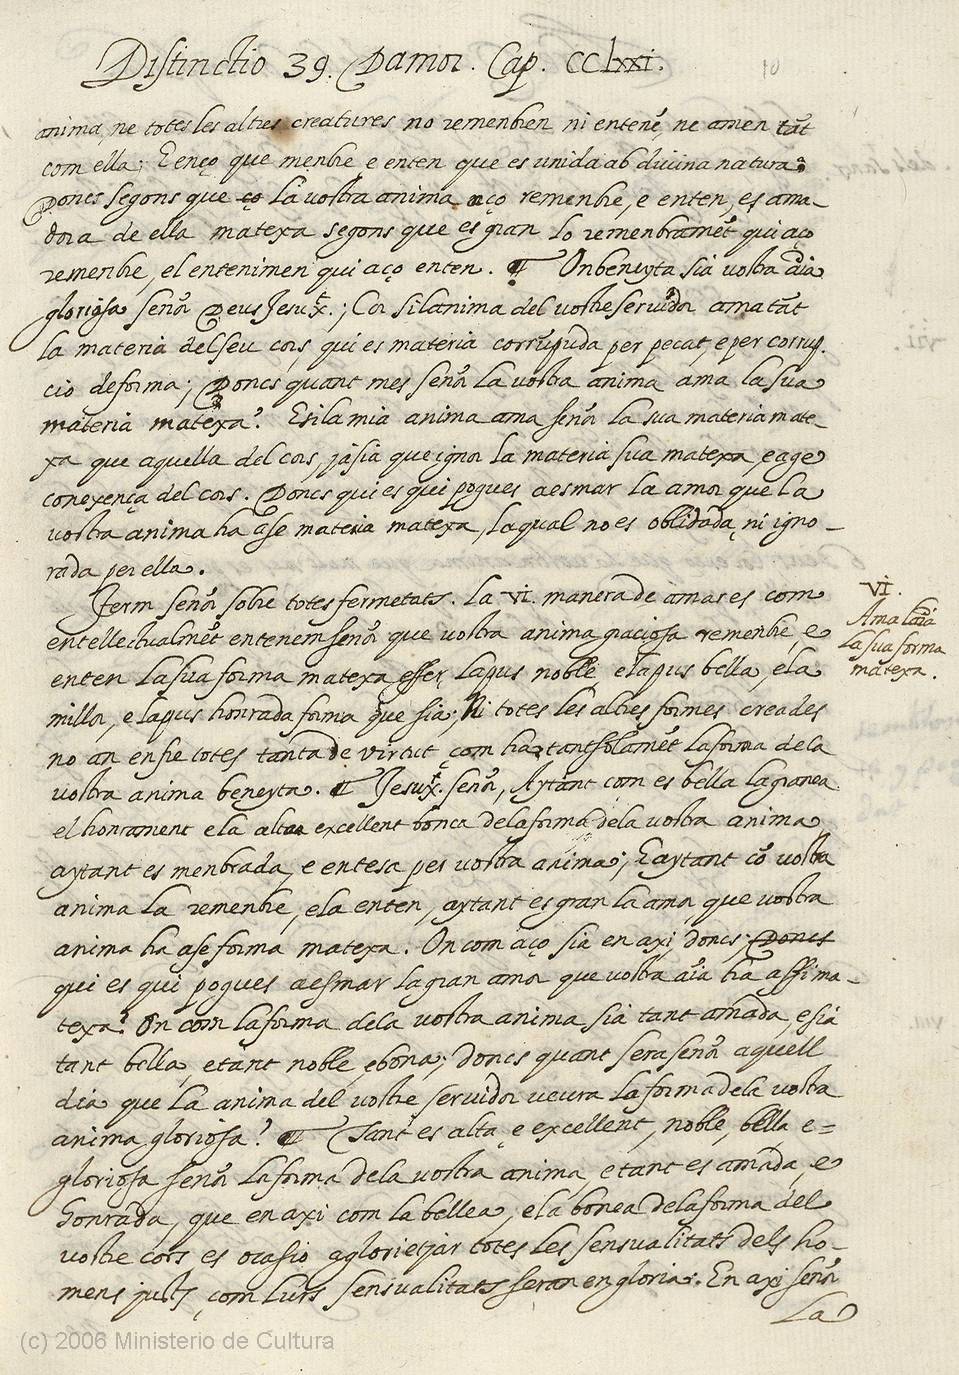 Distinctio 39. Damor. Cap. CClxxi.
10
anima, ne totes les altres creatures no remenbren ni entenē, ne amen tāt
com ella; E en ço que menbre e enten que es unida ab divina natura;
Doncs segons que ço la vostra anima aço remenbre, e enten, es ama-
dora de ella matexa segons que es gran lo remenbramēt qui aço
remenbre, el enteniment qui aço enten. ¶ On beneyta sia vostra aīa
gloriosa señor Deus Jesu xt.; Cor si lanima del vostre servidor ama tāt
la materia del seu cors, qui es materia corrūpuda per pecat, e per corrup-
cio de forma; Doncs quant mes señor la vostra anima ama la sua
materia matexa? E si la mia anima ama señor la sua materia mate-
xa que aquella del cors, ja sia que ignor la materia sua matexa, e age
conexença del cors. Doncs qui es qui pogues aesmar la amor que la
vostra anima ha a se materia matexa, laqual no es oblidada, ni igno-
rada per ella.
Ferm señor sobre totes fermetats. La vi. manera de amar es com
entellectualmēt entenem señor que vostra anima graciosa remenbre, e
enten la sua forma matexa esser la pus noble, e la pus bella, e la
millor, e la pus honrada forma que sia; Ni totes les altres formes creades
no an enfre totes tanta de virtut com ha tant solamēt la forma de la
vostra anima beneyta. ¶ Jesu xt. señor, Aytant com es bella la granea
el honrament e la alta excellent bonea de la forma de la vostra anima,
aytant es menbrada, e entesa per vostra anima; E aytant cō vostra
anima la remenbre, e la enten, aytant es gran la amor que vostra
anima ha a se forma matexa. On com aço sia en axi, doncs Doncs
qui es qui pogues aesmar la gran amor que vostra aīa ha assi ma-
texa? On com la forma de la vostra anima sia tant amada, e sia
tant bella, e tant noble, e bona; doncs quant sera señor aquell
dia que la anima del vostre servidor veura la forma de la vostra
anima gloriosa? ¶ Tant es alta, e excellent, noble, bella, e=
gloriosa señor la forma de la vostra anima, e tant es amada, e
honrada, que en axi com la bellea, e la bonea de la forma del
vostre cors es ocasio a glorieiar totes les sensualitats dels ho-
mens justs, com lurs sensualitats seran en gloria: En axi señor
La
VI.
Ama la aīa
la sua forma
matexa.
(c) 2006 Ministerio de Cultura